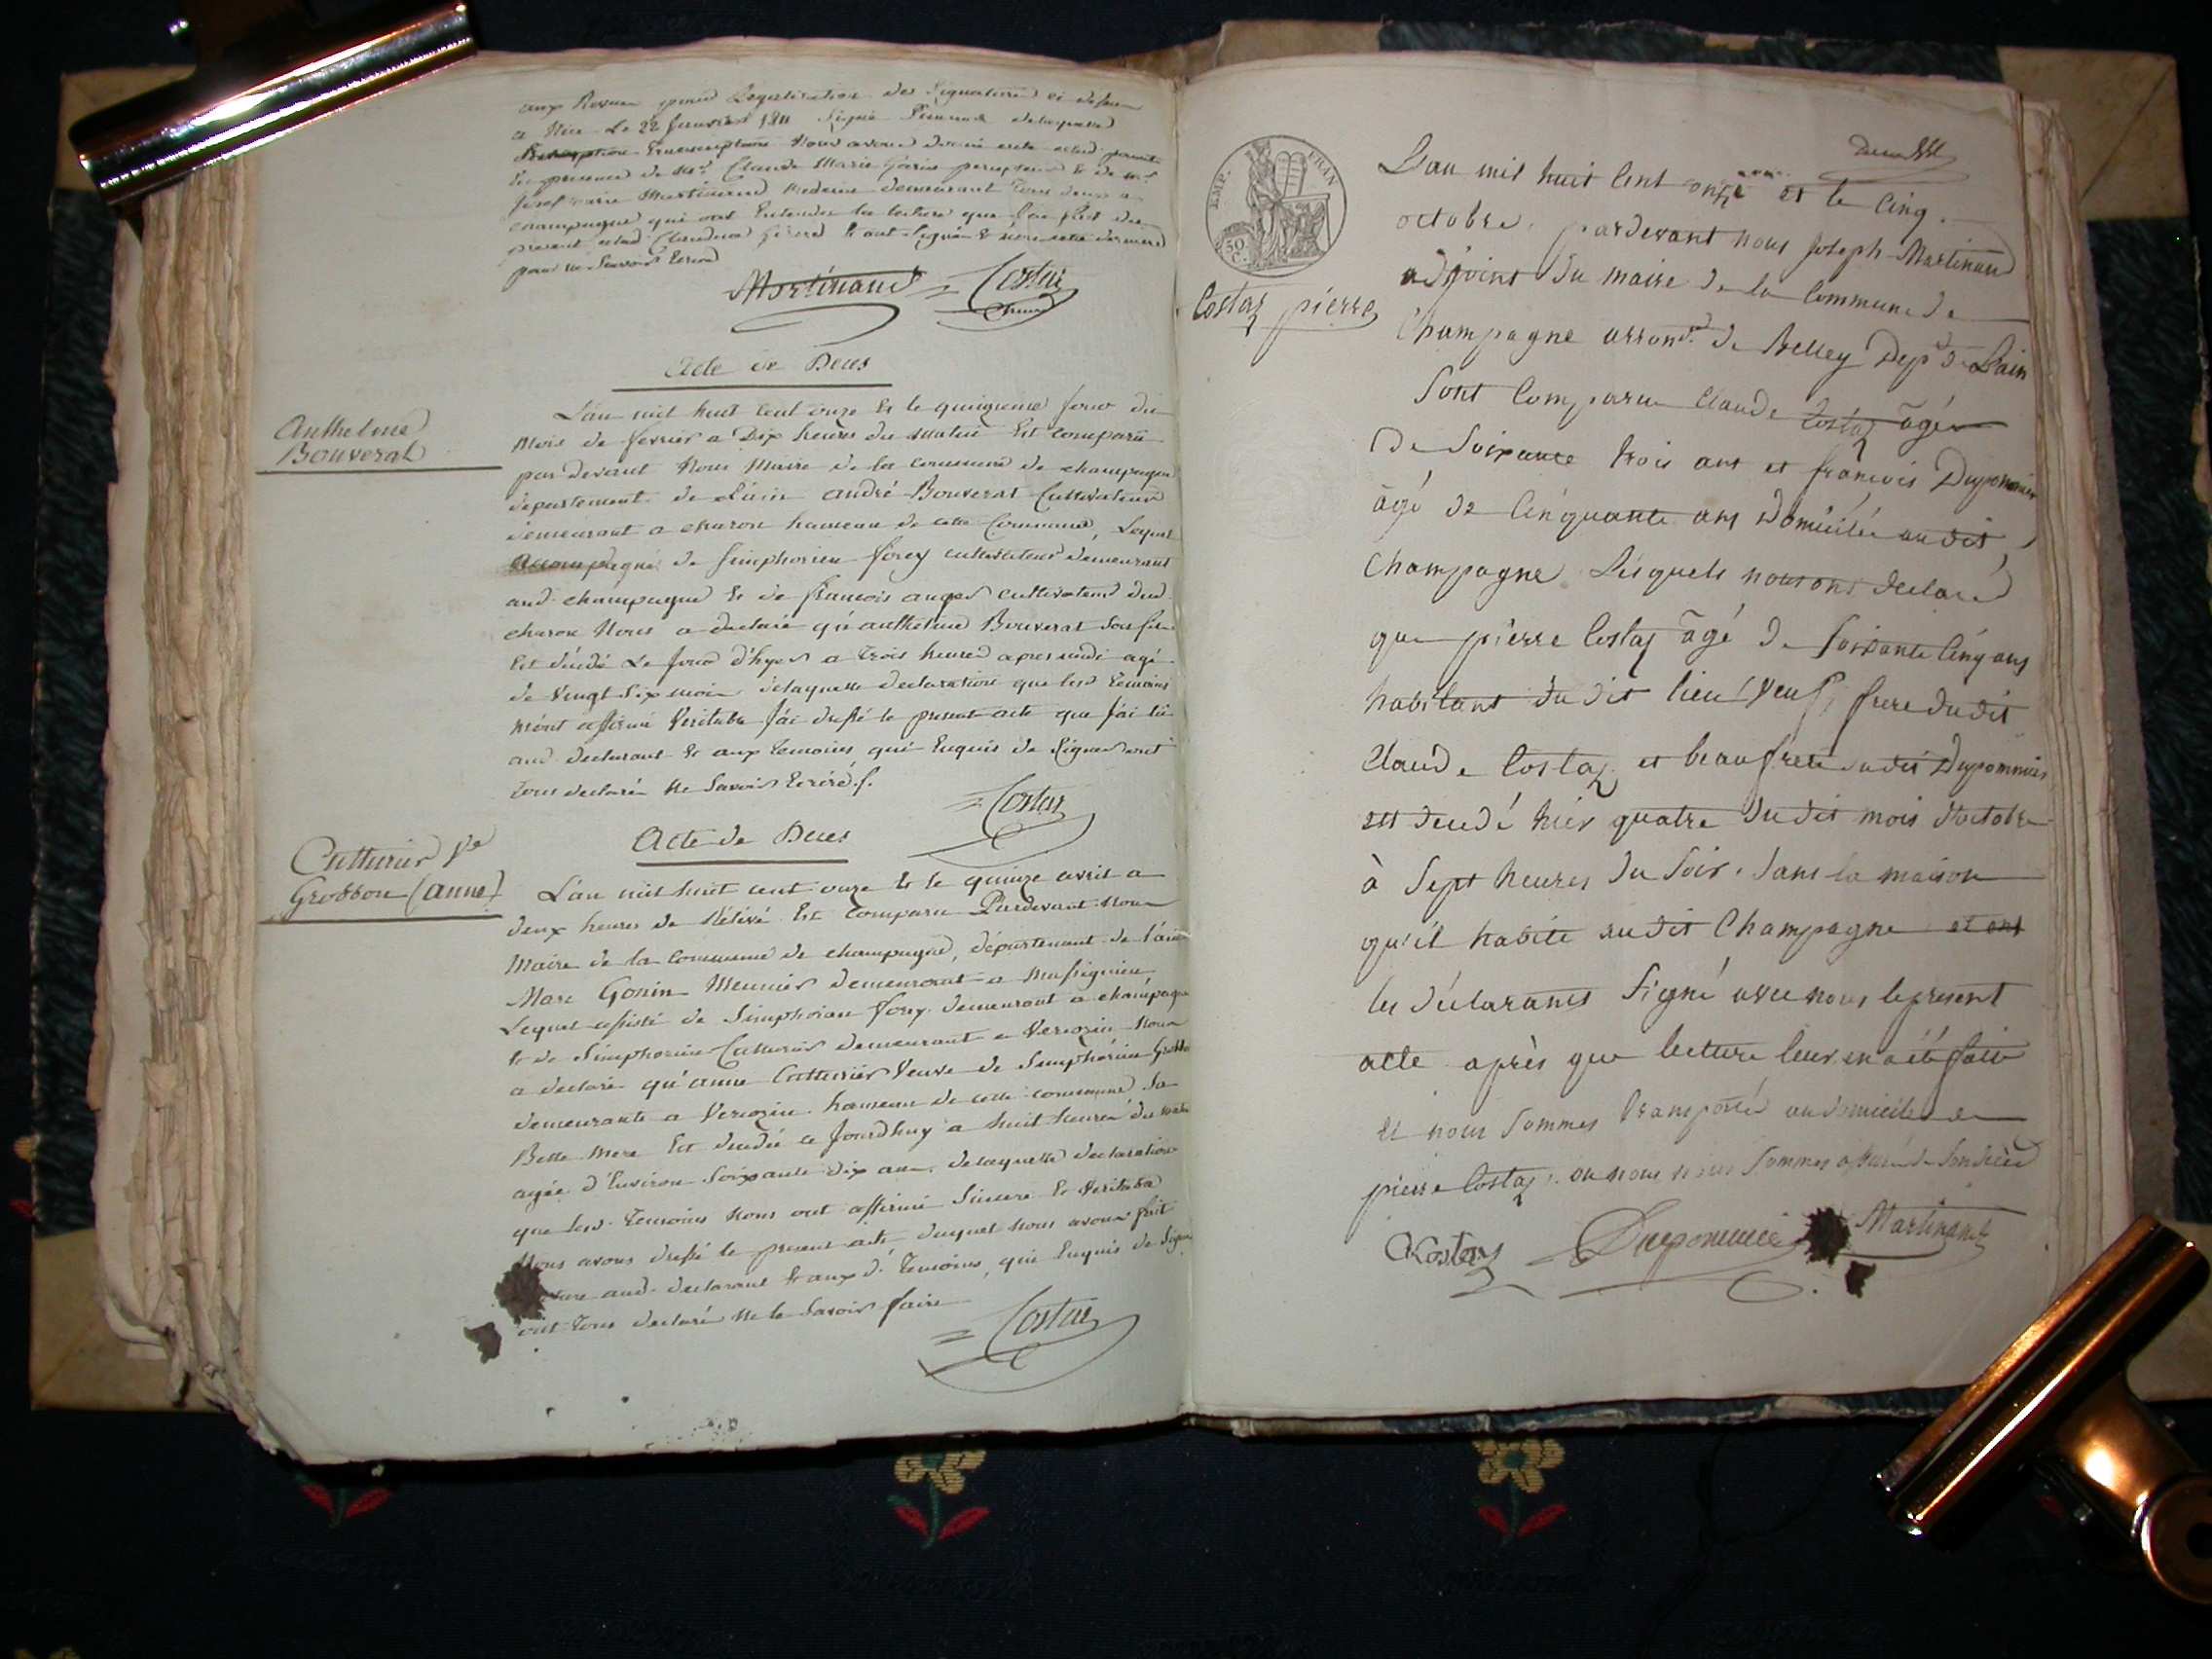 a Nice Le 22 Janvier 1811 signé
transcription Nous avons
En presence de Mr. Claude Marie Gorin percepteur & de Mr.
Josef Marie Martinand medecin demeurant Tous deux a
champagne qui ont Entendu la lecture que J'ai fait du
present & ont signé
pour ne Savoir Ecrire
Martinand = Costaz
Acte de Deces
Anthelme
Bouverat
L'an mil huit cent onze & le quinzieme Jour du
Mois de fevrier a Dix heures du matin Est comparu
par devant Nous Maire de la commune de champagne
departement de L'ain andré Bouverat Cultivateur
demeurant a charon hameau de cette Commune, Lequel
accompagné de Simphorien forey cultivateur demeurant
aud. champagne & de francois anger cultivateur dud.
charon Nous a declaré qu'anthelme Bouverat son fils
Est décédé Le Jour d'hyer a Trois heures apres midi agé
de Vingt Six mois delaquelle declaration que lesd temoins
m'ont affirmé Veritable J'ai dressé le present acte que J'ai lû
aud. declarant & aux Temoins qui Enquis de Signer ont
Tous declaré Ne Savoir Ecriré./.
= Costaz
Acte de Deces
Cutturier Ve
Grobbon (anne)
L'an mil huit cent onze & le quinze avril a
deux heures de Rélévé Est comparu Pardevant Nous
Maire de la commune de champagne, département de l'ain
Marc Gonin Meunier demeurant a Massignieu
Lequel assisté de Simphorien forey demeurant a champagne
& de Simphorien Cutturier demeurant a Verizieu Nous
a declaré qu'anne Cutturier Veuve de Simphorien Grobbon
demeurante a Verizieu hameau de cette commune Sa
Belle Mere Est decedée ce Jourdhuy a huit heures du matin
agée d'Environ Soixante dix ans, delaquelle declaration
que lesd. Temoins Nous ont affirmé Sincere & Veritable
Nous avons dressé le present acte duquel Nous avons fait
lecture aud. declarant & auxd. Temoins, qui Enquis de Signer
ont Tous declaré Ne le Savoir faire
= Costaz
EMP. FRAN
50 C.
Costaz pierre
L'an mil huit Cent onze et le Cinq
octobre, pardevant nous Joseph Martinand
adjoint du maire de la Commune de
Champagne arrondt. de Belley Dept. de L'ain
Sont Comparu Claude Costaz âgé
de Soixante trois ans et francois Dupommier
âgé de Cinquante ans Domicilié audit
Champagne Lesquels nous ont declaré
que pierre Costaz âgé de Soixante Cinq ans
habitant dudit lieu (veuf) frere dudit
Claude Costaz et beaufrere dudit Dupommier
est décédé hier quatre dudit mois d'octobre
à Sept heures du Soir, dans la maison
qu'il habite audit Champagne et ont
les déclarants Signé avec nous le present
acte après que lecture leur en a été faite
et nous Sommes transporté audomicile de
pierre Costaz. ou nous nous Sommes assuré de Son décès
CKostaz = Dupommier Martinand